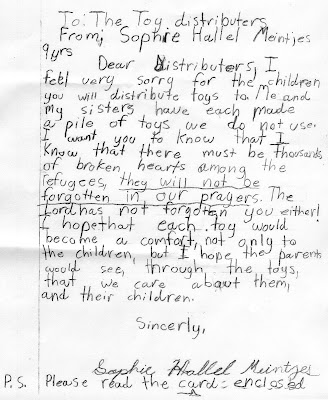 To: The Toy distributers
From; Sophie Hallel Meintjes
9yrs
Dear distributers, I
feel very sorry for the children
you will distribute toys to. Me and
my sisters have each made
a pile of toys we do not use.
I want you to know that I
Know that there must be thousands
of broken hearts among the
refugees, they will not be
forgotten in our prayers. The
Lord has not forgotten you either!
I hope that each toy would
become a comfort, not only to
the children, but I hope the parents
would see, through the toys,
that we care about them,
and their children.
Sincerly,
Sophie Hallel Meintjes
P.S. Please read the card = enclosed